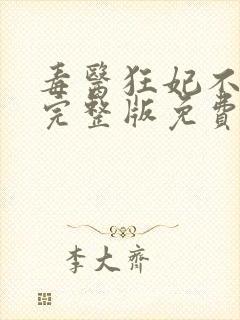 毒醫狂妃不
完整版免費
李大齊